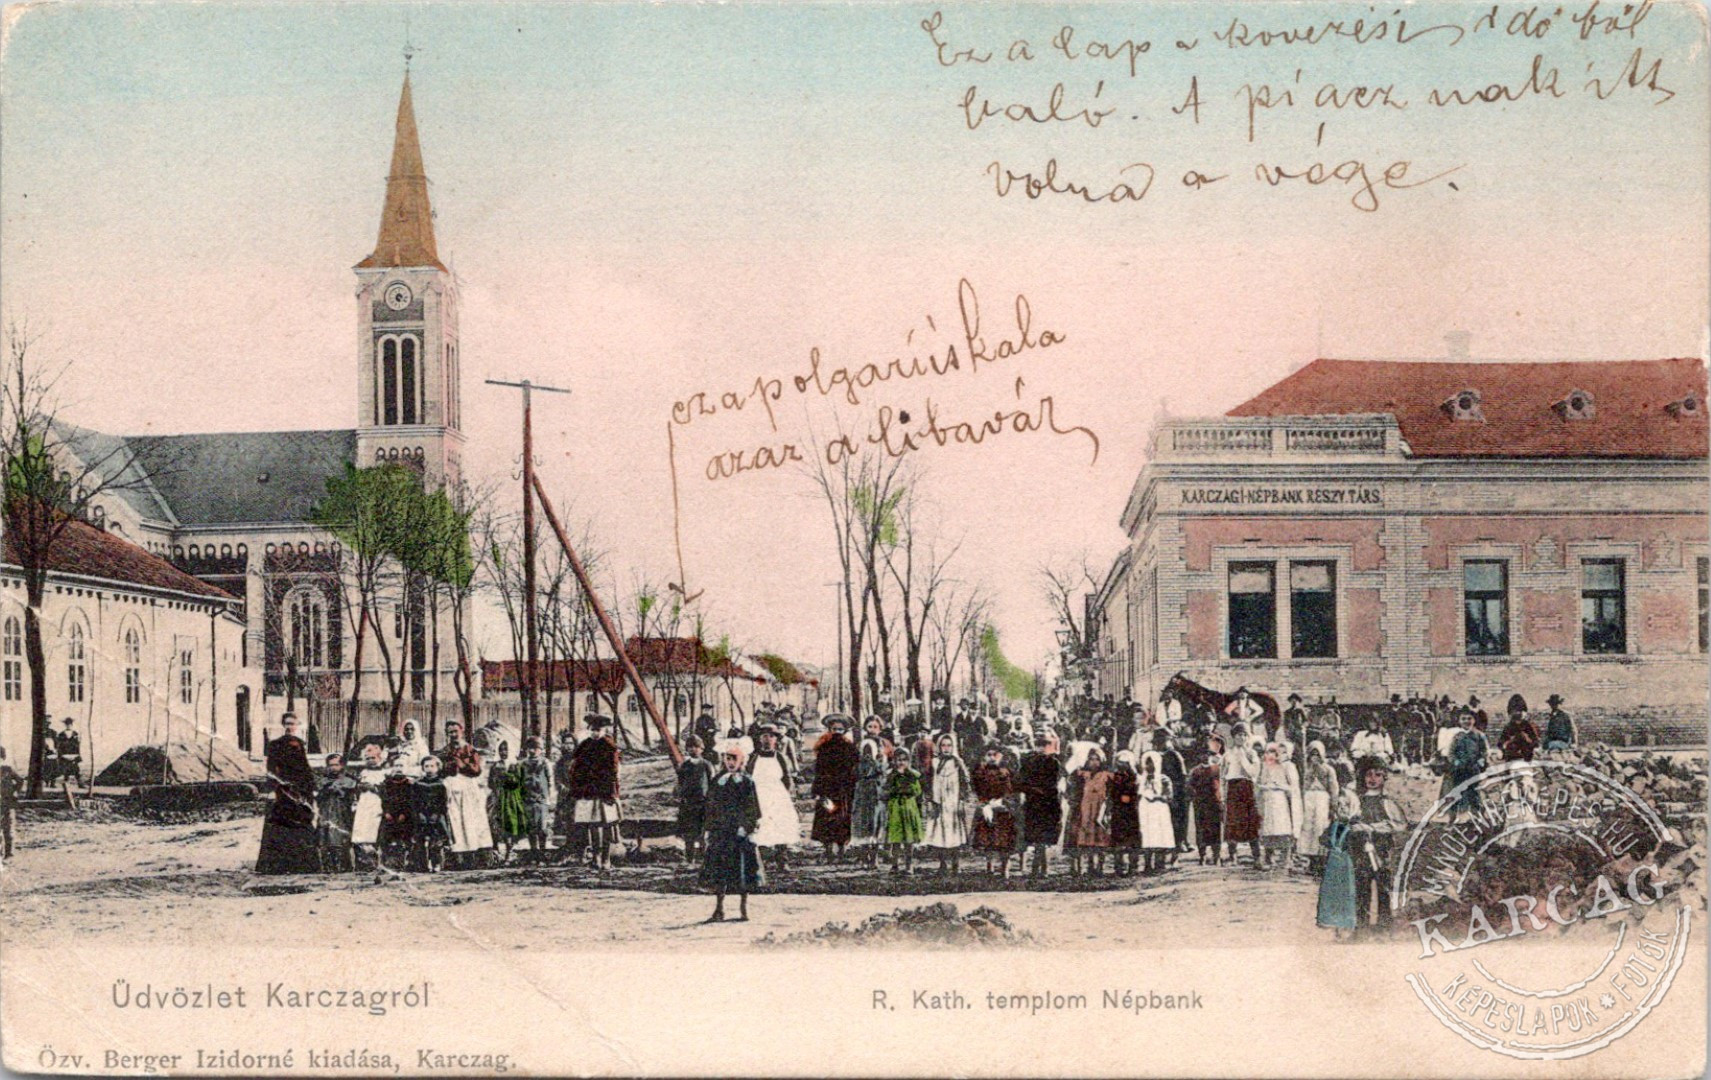 Ez a lap a kövezési időből
való. A piacznak itt
volna a vége.
ez a polgariúskala
azaz a libavár
KARCZAGI-NÉPBANK RESZV.TÁRS.
MINDENKEPEK.HU
KARCAG
KÉPESLAPOK * FOTÓK
Üdvözlet Karczagról
R. Kath. templom Népbank
Özv. Berger Izidorné kiadása, Karczag.